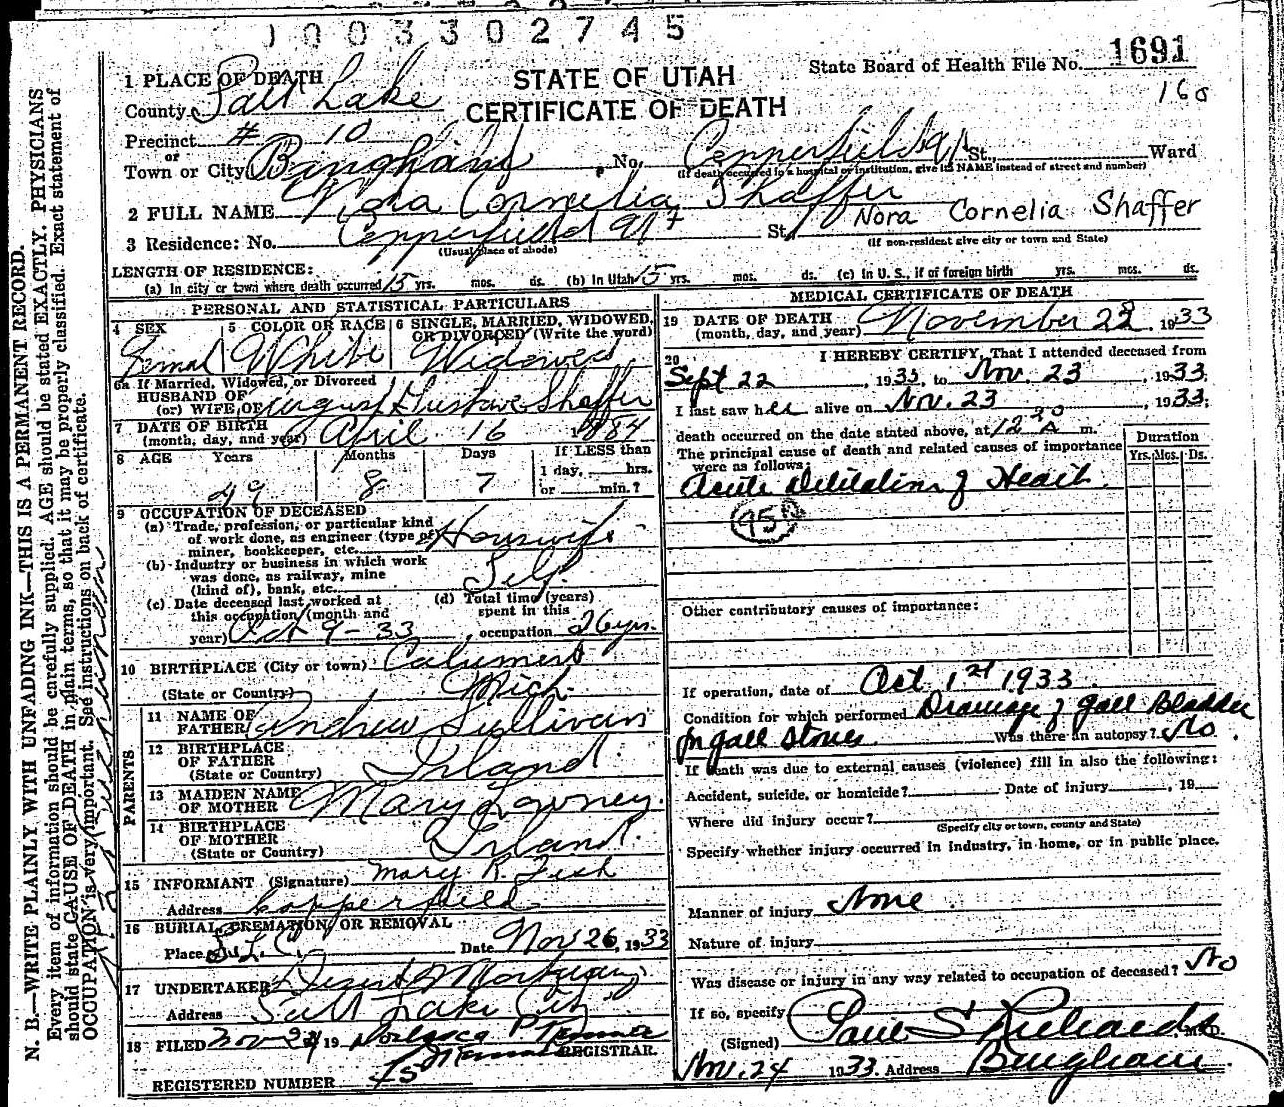 1003302745
STATE OF UTAH
CERTIFICATE OF DEATH
State Board of Health File No. 1691
160
1 PLACE OF DEATH
County Salt Lake
Precinct # 10
or
Town or City Bingham No. Copperfield Ut St., Ward
(If death occurred in a hospital or institution, give its NAME instead of street and number)
2 FULL NAME Nora Cornelia Shaffer
Nora Cornelia Shaffer
3 Residence: No. Copperfield Ut St.
(Usual place of abode) (If non-resident give city or town and State)
LENGTH OF RESIDENCE:
(a) In city or town where death occurred 15 yrs. mos. ds. (b) In Utah 15 yrs. mos. ds. (c) In U. S., if of foreign birth yrs. mos. ds.
PERSONAL AND STATISTICAL PARTICULARS
4 SEX 5 COLOR OR RACE 6 SINGLE, MARRIED, WIDOWED, OR DIVORCED (Write the word)
Femal White Widowed
6a If Married, Widowed, or Divorced
HUSBAND OF
(or) WIFE OF August Gustave Shaffer
7 DATE OF BIRTH
(month, day, and year) April 16 1884
8 AGE Years Months Days If LESS than
1 day, hrs.
49 8 7 or min.?
9 OCCUPATION OF DECEASED
(a) Trade, profession, or particular kind
of work done, as engineer (type of
miner, bookkeeper, etc. Houswife
(b) Industry or business in which work
was done, as railway, mine
(kind of), bank, etc. Self
(c) Date deceased last worked at
this occupation (month and
year) Oct 9-33
(d) Total time (years)
spent in this
occupation 26 yrs.
10 BIRTHPLACE (City or town) Calumet
(State or Country) Mich.
PARENTS
11 NAME OF
FATHER Andrew Sullivan
12 BIRTHPLACE
OF FATHER
(State or Country) Irland.
13 MAIDEN NAME
OF MOTHER Mary Lowney.
14 BIRTHPLACE
OF MOTHER
(State or Country) Irland.
15 INFORMANT (Signature) Mary R. Fish
Address Copperfield
16 BURIAL, CREMATION, OR REMOVAL
Place S. L. C. Date Nov 26, 1933
17 UNDERTAKER Mortuary
Address Salt Lake City
18 FILED Nov 24 19
REGISTRAR.
REGISTERED NUMBER 45
MEDICAL CERTIFICATE OF DEATH
19 DATE OF DEATH
(month, day, and year) November 23, 1933
20 I HEREBY CERTIFY, That I attended deceased from
Sept 22, 1933, to Nov. 23, 1933.
I last saw her alive on Nov. 23, 1933;
death occurred on the date stated above, at 12 30 A m.
The principal cause of death and related causes of importance
were as follows:
Duration
Yrs. Mos. Ds.
Acute Dilitation of Heart.
95
Other contributory causes of importance:
If operation, date of Oct 1st 1933
Condition for which performed Drainage of Gall Bladder
for gall stones Was there an autopsy? No.
If death was due to external causes (violence) fill in also the following:
Accident, suicide, or homicide? Date of injury, 19
Where did injury occur?
(Specify city or town, county and State)
Specify whether injury occurred in industry, in home, or in public place.
Manner of injury None
Nature of injury
Was disease or injury in any way related to occupation of deceased? No
If so, specify
(Signed) Paul S Richards M.D.
Nov. 24 1933. Address Bingham
N. B.—WRITE PLAINLY WITH UNFADING INK—THIS IS A PERMANENT RECORD.
Every item of information should be carefully supplied. AGE should be stated EXACTLY. PHYSICIANS
should state CAUSE OF DEATH in plain terms, so that it may be properly classified. Exact statement of
OCCUPATION is very important. See instructions on back of certificate.